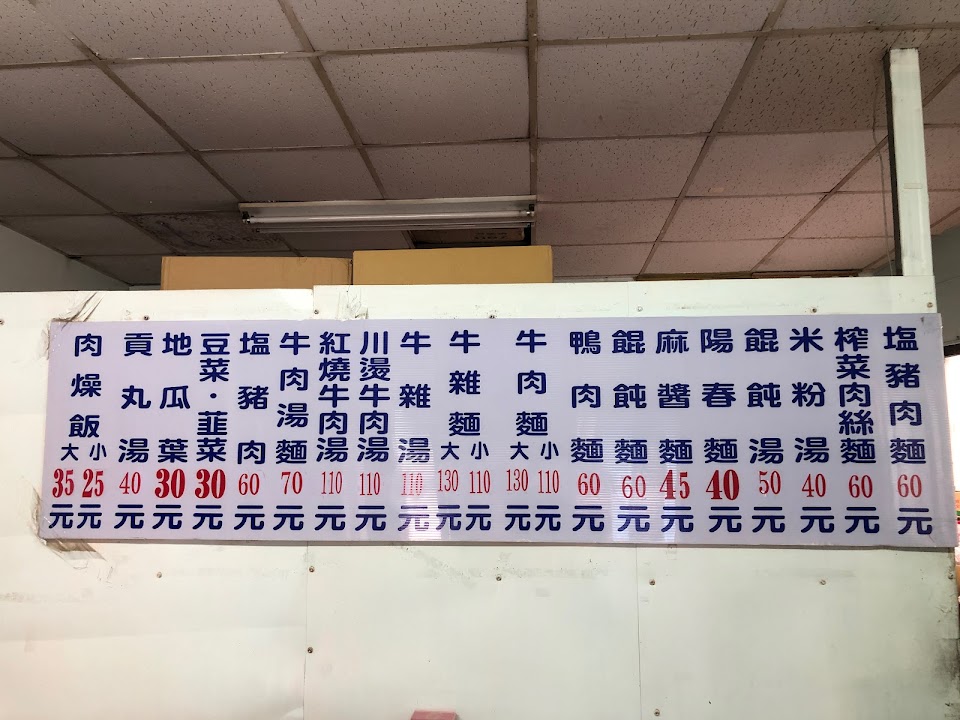 塩豬肉麵60元
榨菜肉絲麵60元
米粉湯40元
餛飩湯50元
陽春麵40元
麻醬麵45元
餛飩麵60元
鴨肉麵60元
牛肉麵大小130 110元元
牛雜麵大小130 110元元
牛雜湯110元
川燙牛肉湯110元
紅燒牛肉湯110元
牛肉湯麵70元
塩豬肉60元
豆菜·韮菜30元
地瓜葉30元
貢丸湯40元
肉燥飯大小35 25元元